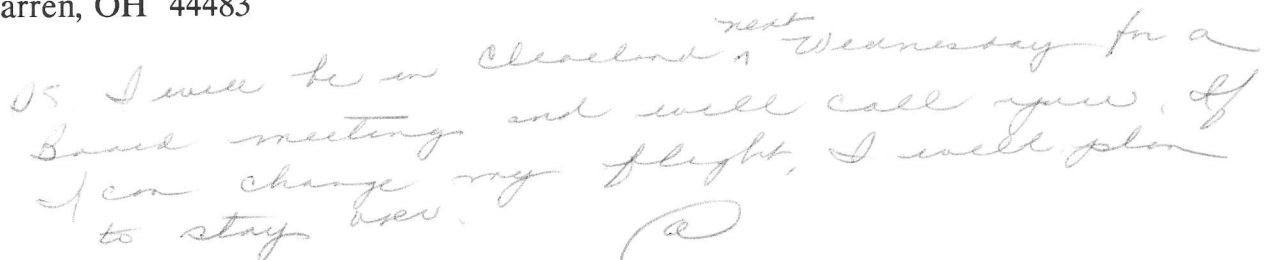 arren, OH 44483
PS. I will be in Cleveland next Wednesday for a
Board meeting and will call you. If
I can change my flight, I will plan
to stay over.